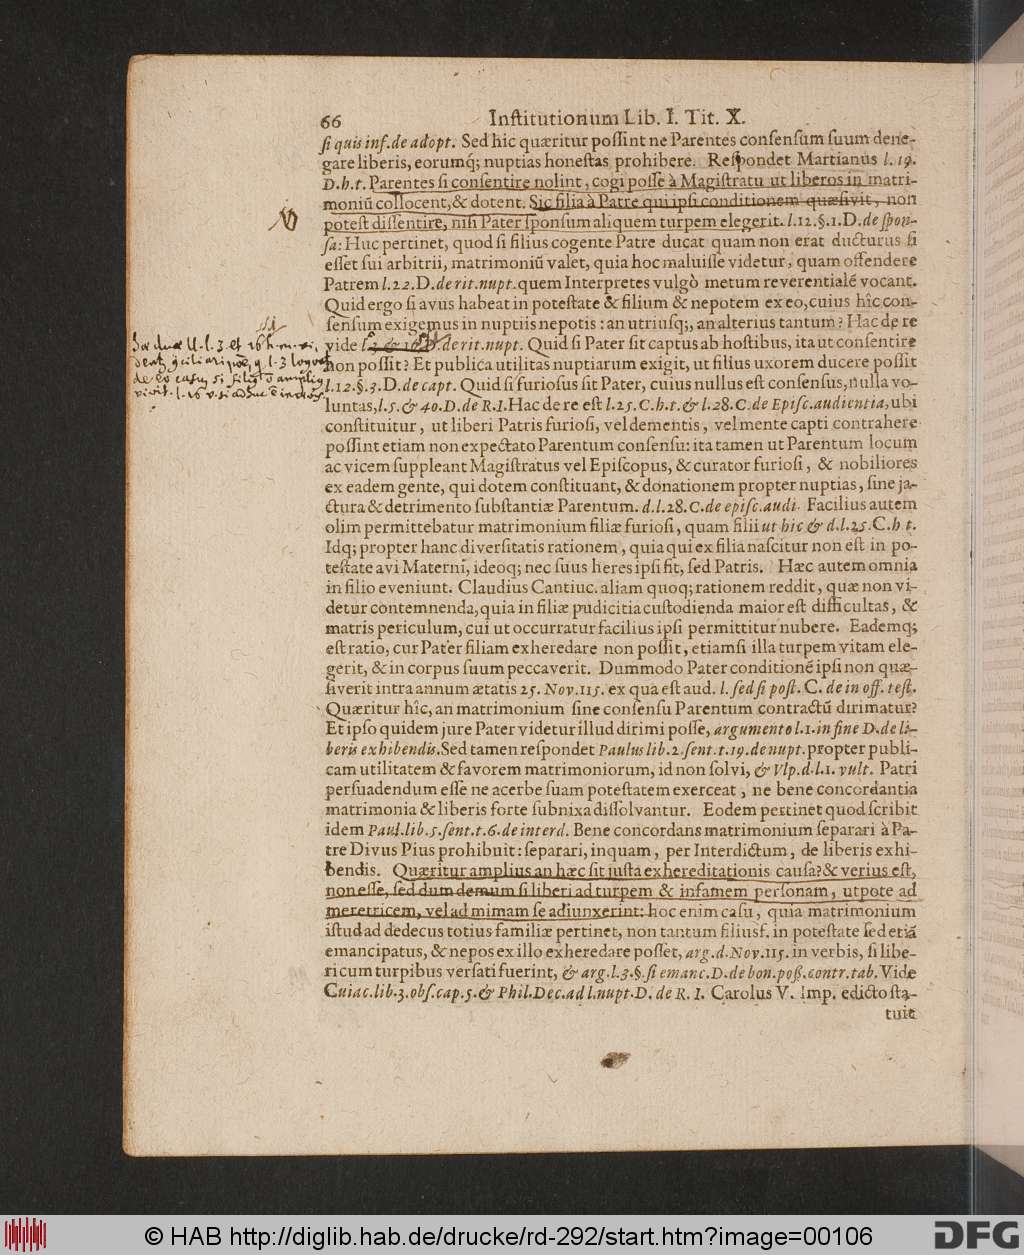 66 Inſtitutionum Lib. I. Tit. X.
ſi quis inf. de adopt. Sed hic quæritur poſſint ne Parentes conſenſum ſuum dene-
gare liberis, eorumq́; nuptias honeſtas prohibere. Reſpondet Martianus l. 19.
D. h. t. Parentes ſi conſentire nolint, cogi poſſe à Magiſtratu ut liberos in matri-
moniũ collocent, & dotent. Sic filia à Patre qui ipſi conditionem quæſivit, non
poteſt diſſentire, niſi Pater ſponſum aliquem turpem elegerit. l. 12. §. 1. D. de ſpon-
ſa: Huc pertinet, quod ſi filius cogente Patre ducat quam non erat ducturus ſi
eſſet ſui arbitrii, matrimoniũ valet, quia hoc maluiſſe videtur, quam offendere
Patrem l. 22. D. de rit. nupt. quem Interpretes vulgò metum reverentialẽ vocant.
Quid ergo ſi avus habeat in poteſtate & filium & nepotem ex eo, cuius hîc con-
ſenſum exigemus in nuptiis nepotis: an utriuſq;, an alterius tantum? Hac de re
vide l. 3 & 16. D. de rit. nupt. Quid ſi Pater ſit captus ab hoſtibus, ita ut conſentire
non poſſit? Et publica utilitas nuptiarum exigit, ut filius uxorem ducere poſſit
l. 12. §. 3. D. de capt. Quid ſi furioſus ſit Pater, cuius nullus eſt conſenſus, nulla vo-
luntas, l. 5. & 40. D. de R. I. Hac de re eſt l. 25. C. h. t. & l. 28. C. de Epiſc. audientia, ubi
conſtituitur, ut liberi Patris furioſi, vel dementis, vel mente capti contrahere
poſſint etiam non expectato Parentum conſenſu: ita tamen ut Parentum locum
ac vicem ſuppleant Magiſtratus vel Epiſcopus, & curator furioſi, & nobiliores
ex eadem gente, qui dotem conſtituant, & donationem propter nuptias, ſine ja-
ctura & detrimento ſubſtantiæ Parentum. d. l. 28. C. de epiſc. audi. Facilius autem
olim permittebatur matrimonium filiæ furioſi, quam filii ut hic & d. l. 25. C. h t.
Idq; propter hanc diverſitatis rationem, quia qui ex filia naſcitur non eſt in po-
teſtate avi Materni, ideoq; nec ſuus heres ipſi fit, ſed Patris. Hæc autem omnia
in filio eveniunt. Claudius Cantiuc. aliam quoq; rationem reddit, quæ non vi-
detur contemnenda, quia in filiæ pudicitia cuſtodienda maior eſt difficultas, &
matris periculum, cui ut occurratur facilius ipſi permittitur nubere. Eademq;
eſt ratio, cur Pater filiam exheredare non poſſit, etiamſi illa turpem vitam ele-
gerit, & in corpus ſuum peccaverit. Dummodo Pater conditionẽ ipſi non quæ-
ſiverit intra annum ætatis 25. Nov. 115. ex qua eſt aud. l. ſed ſi poſt. C. de in off. teſt.
Quæritur hîc, an matrimonium ſine conſenſu Parentum contractũ dirimatur?
Et ipſo quidem jure Pater videtur illud dirimi poſſe, argumento l. 1. in fine D. de li-
beris exhibendis. Sed tamen reſpondet Paulus lib. 2. ſent. t. 19. de nupt. propter publi-
cam utilitatem & favorem matrimoniorum, id non ſolvi, & Vlp. d. l. 1. vult. Patri
perſuadendum eſſe ne acerbe ſuam poteſtatem exerceat, ne bene concordantia
matrimonia & liberis forte ſubnixa diſſolvantur. Eodem pertinet quod ſcribit
idem Paul. lib. 5. ſent. t. 6. de interd. Bene concordans matrimonium ſeparari à Pa-
tre Divus Pius prohibuit: ſeparari, inquam, per Interdictum, de liberis exhi-
bendis. Quæritur amplius an hæc ſit juſta exhereditationis cauſa? & verius eſt,
non eſſe, ſed dum demum ſi liberi ad turpem & infamem perſonam, utpote ad
meretricem, vel ad mimam ſe adiunxerint: hoc enim caſu, quia matrimonium
iſtud ad dedecus totius familiæ pertinet, non tantum filiusf. in poteſtate ſed etiã
emancipatus, & nepos ex illo exheredare poſſet, arg. d. Nov. 115. in verbis, ſi libe-
ricum turpibus verſati fuerint, & arg. l. 3. §. ſi emanc. D. de bon. poß. contr. tab. Vide
Cuiac. lib. 3. obſ. cap. 5. & Phil. Dec. ad l. nupt. D. de R. I. Carolus V. Imp. edicto ſta-
tuit
© HAB http://diglib.hab.de/drucke/rd-292/start.htm?image=00106
DFG